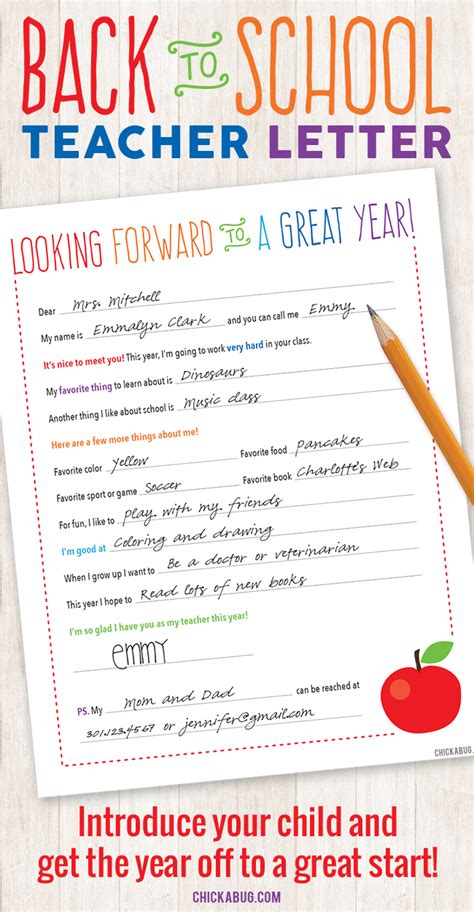 BACK TO SCHOOL
TEACHER LETTER
LOOKING FORWARD TO A GREAT YEAR!
Dear Mrs. Mitchell
My name is Emmalyn Clark and you can call me Emmy.
It's nice to meet you! This year, I'm going to work very hard in your class.
My favorite thing to learn about is Dinosaurs
Another thing I like about school is Music class
Here are a few more things about me!
Favorite color yellow Favorite food pancakes
Favorite sport or game Soccer Favorite book Charlotte's Web
For fun, I like to play with my friends
I'm good at Coloring and drawing
When I grow up I want to Be a doctor or veterinarian
This year I hope to Read lots of new books
I'm so glad I have you as my teacher this year!
EMMY
PS. My Mom and Dad can be reached at
301.123.4567 or jennifer@gmail.com
CHICKABUG.COM
Introduce your child and
get the year off to a great start!
CHICKABUG.COM